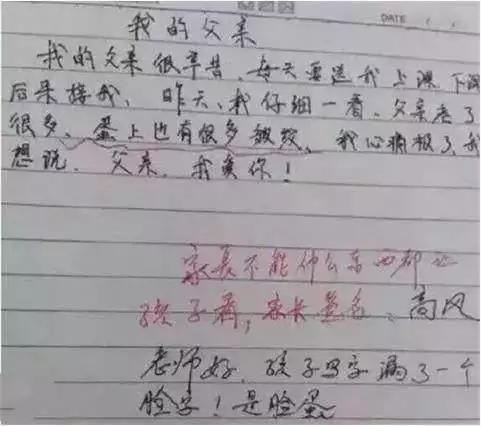 DATE
我的父亲
我的父亲很辛苦、每天要送我上课、下课
后来接我、昨天、我仔细一看、父亲老了
很多、蛋上也有很多皱纹、我心痛极了、我
想说、父亲、我爱你！
家长不能什么东西都让
孩子看，家长签名、高风
老师好、孩子写字漏了一个
脸字！是脸蛋